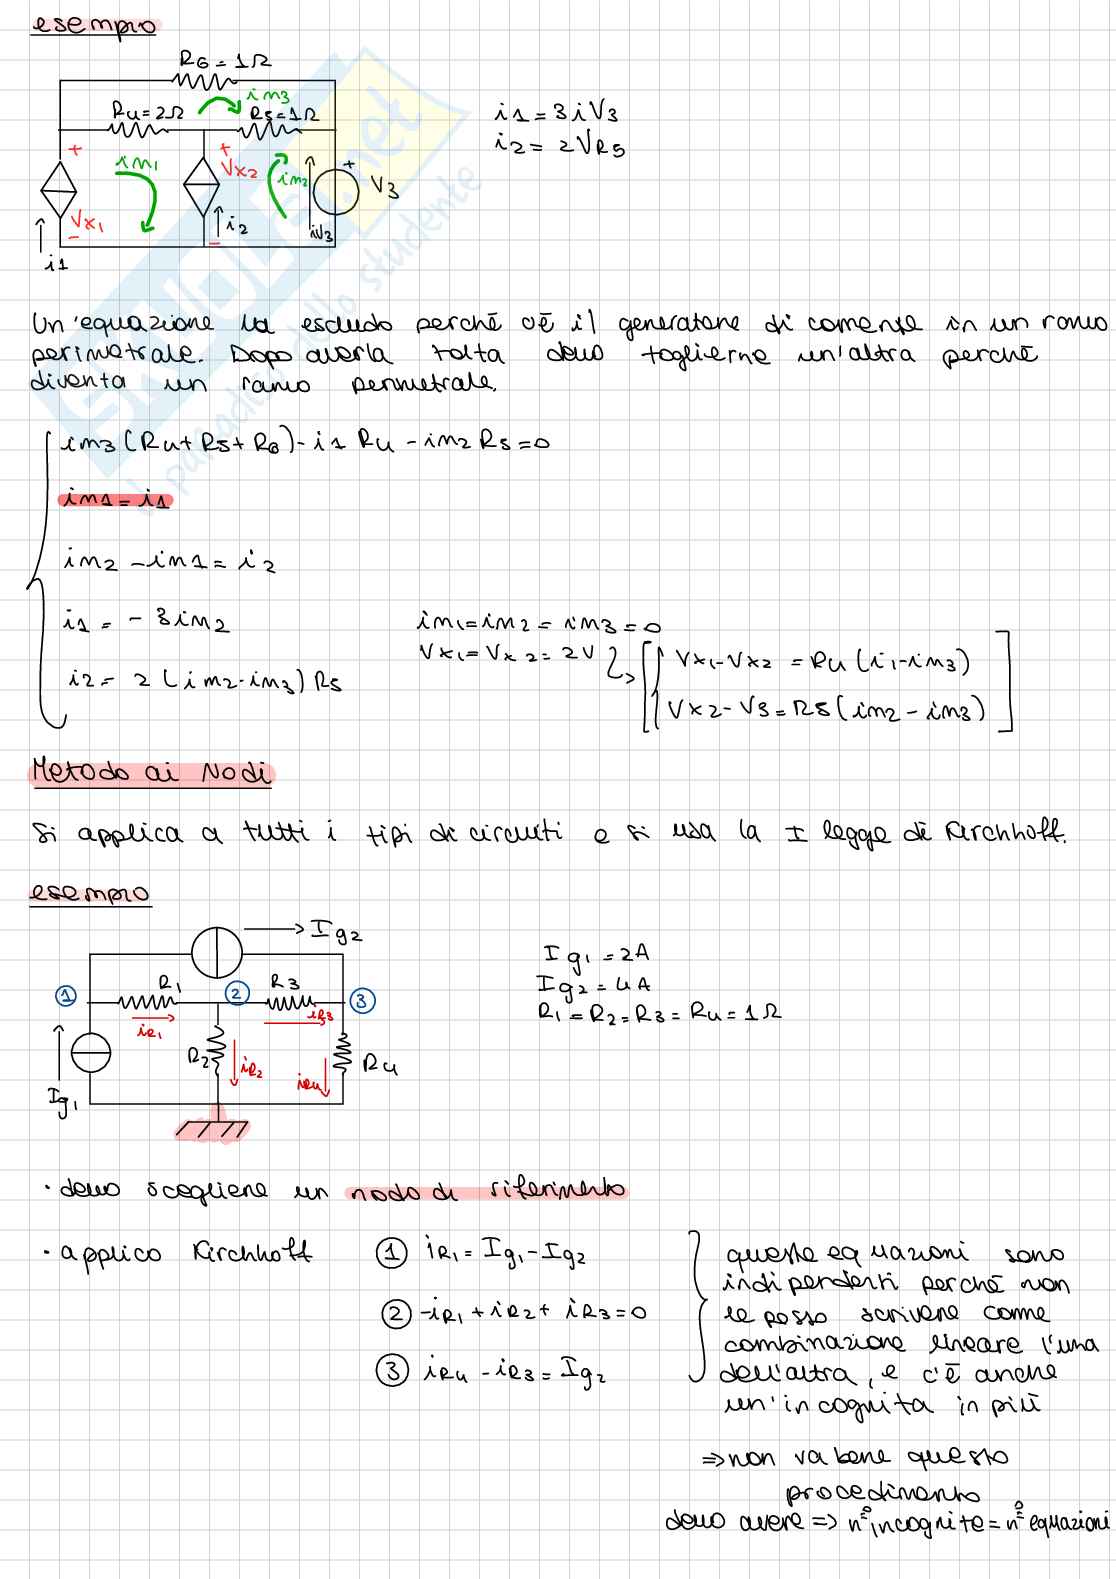 esempio
R6 = 1Ω
im3
R4 = 2Ω
R5 = 1Ω
i1 = 3iV3
i2 = 2VR5
+
im1
+
Vx2
im2
+
V3
Vx1
-
i2
-
iV3
i1
Un'equazione la escludo perché c'è il generatore di corrente in un ramo
perimetrale. Dopo averla tolta devo toglierne un'altra perché
diventa un ramo perimetrale.
im3 (R4 + R5 + R6) - i1 R4 - im2 R5 = 0
im1 = i1
im2 - im1 = i2
i1 = - 3im2
im1 = im2 = im3 = 0
Vx1 = Vx2 = 2V
Vx1 - Vx2 = R4 (i1 - im3)
i2 = 2 (im2 - im3) R5
Vx2 - V3 = R5 (im2 - im3)
Metodo ai Nodi
Si applica a tutti i tipi di circuiti e si usa la I legge di Kirchhoff.
esempio
Ig2
Ig1 = 2A
Ig2 = 4A
R1 = R2 = R3 = R4 = 1Ω
1
R1
2
R3
3
iR1
iR3
R2
iR2
iR4
R4
Ig1
· devo scegliere un nodo di riferimento
· applico Kirchhoff
1 iR1 = Ig1 - Ig2
2 -iR1 + iR2 + iR3 = 0
3 iR4 - iR3 = Ig2
queste equazioni sono
indipendenti perché non
le posso scrivere come
combinazione lineare l'una
dell'altra, e c'è anche
un'incognita in più
⇒ non va bene questo
procedimento
devo avere ⇒ n° incognite = n° equazioni